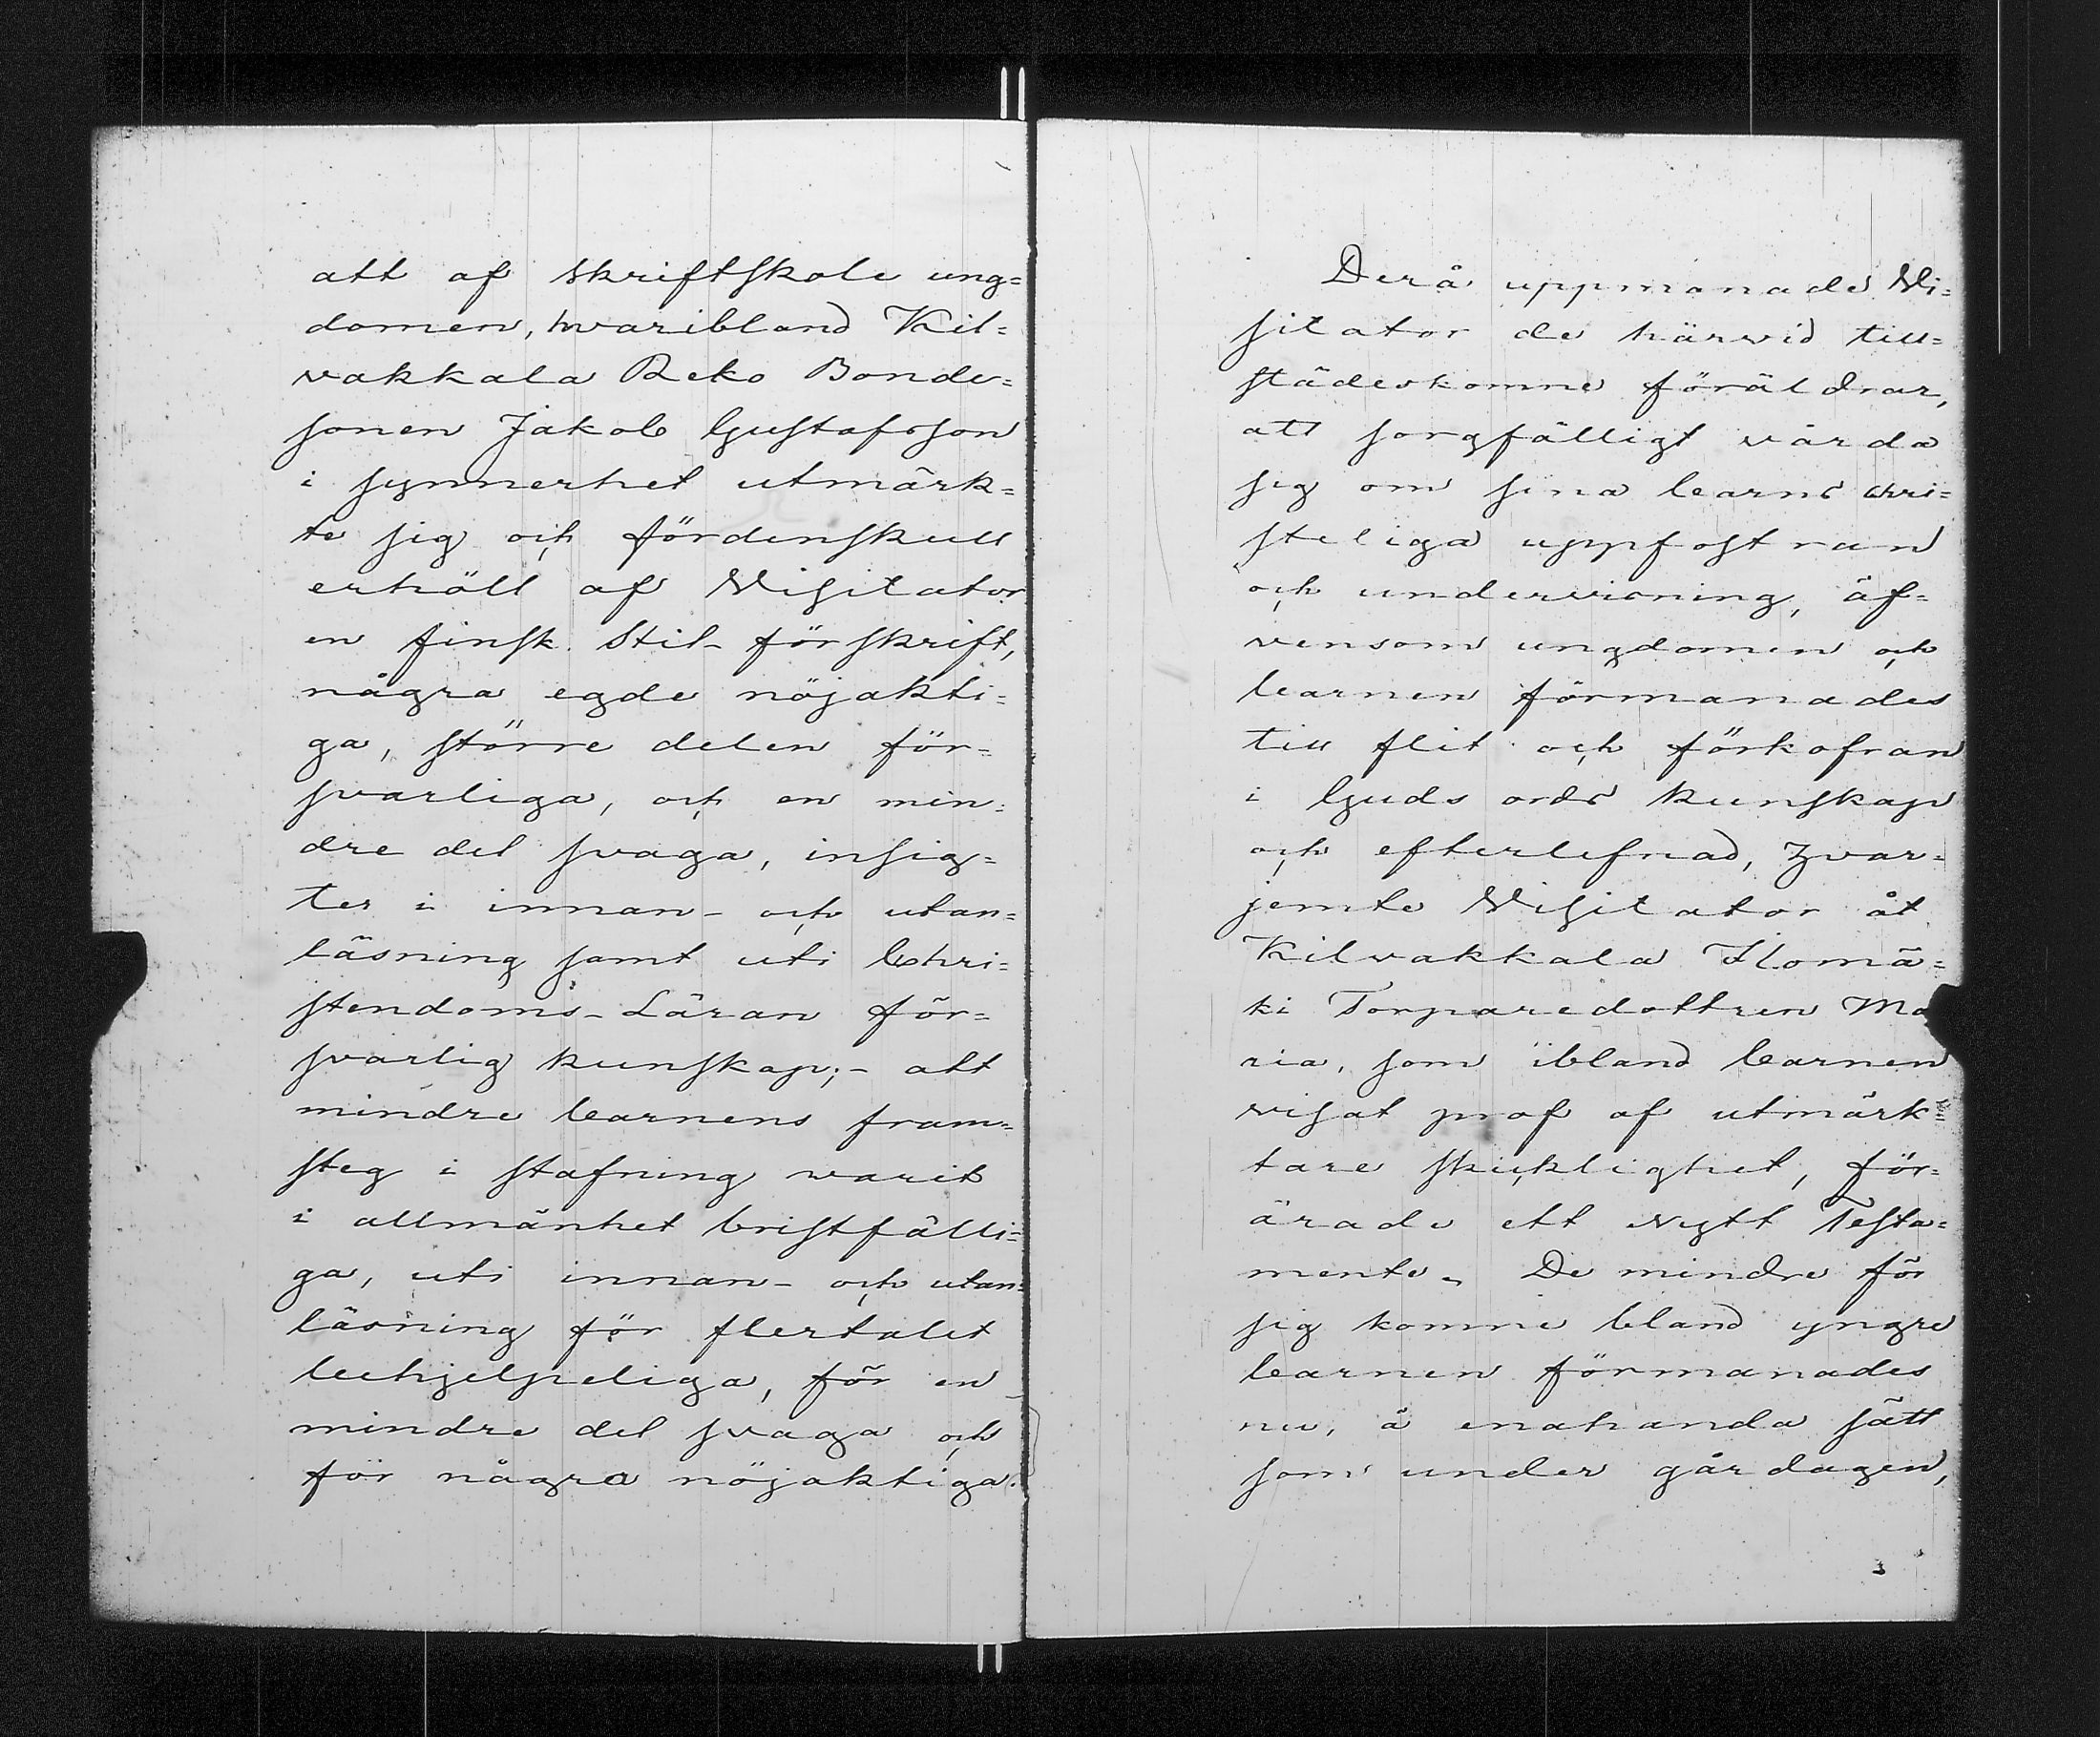 att af skriftskole ung=
domen, hvaribland Kil=
vakkala Reko Bonde=
sonen Jakob Gustafsson
i synnerhet utmärk=
te sig och fördenskull
erhöll af Visitator
en finsk Stil-förskrift,
några egde nöjakti=
ga, större delen för=
svarliga, och en min=
dre del svaga, insig=
ter i innan- och utan=
läsning samt uti Chri=
stendoms-Läran för=
svarlig kunskap; - att
mindre barnens fram=
steg i stafning warit
i allmänhet bristfälli=
ga, uti innan- och utan=
läsning för flertalet
behjelpeliga, för en
mindre del svaga och
för några nöjaktiga.
Derå uppmanade Vi=
sitator de härvid till=
städeskomne föräldrar,
att sorgfälligt vårda
sig om sina barns chri=
steliga uppfostran
och undervisning, äf=
vensom ungdomen och
barnen förmanades
till flit och förkofran
i Guds ords kunskap
och efterlefnad, hvar=
jemte Visitator åt
Kilvakkala Ilomä=
ki Torparedottren Ma
ria, som ibland barnen
visat prof af utmärk=
tare skicklighet, för=
ärade ett Nytt Testa=
mente. De mindre för
sig komne bland yngre
barnen förmanades
nu, å enahanda sätt
som under gårdagen,